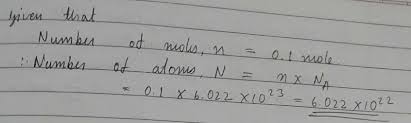 given that
Number of mols, n = 0.1 mole
∴ Number of atoms, N = n × N_A
= 0.1 × 6.022 × 10²³ = 6.022 × 10²²